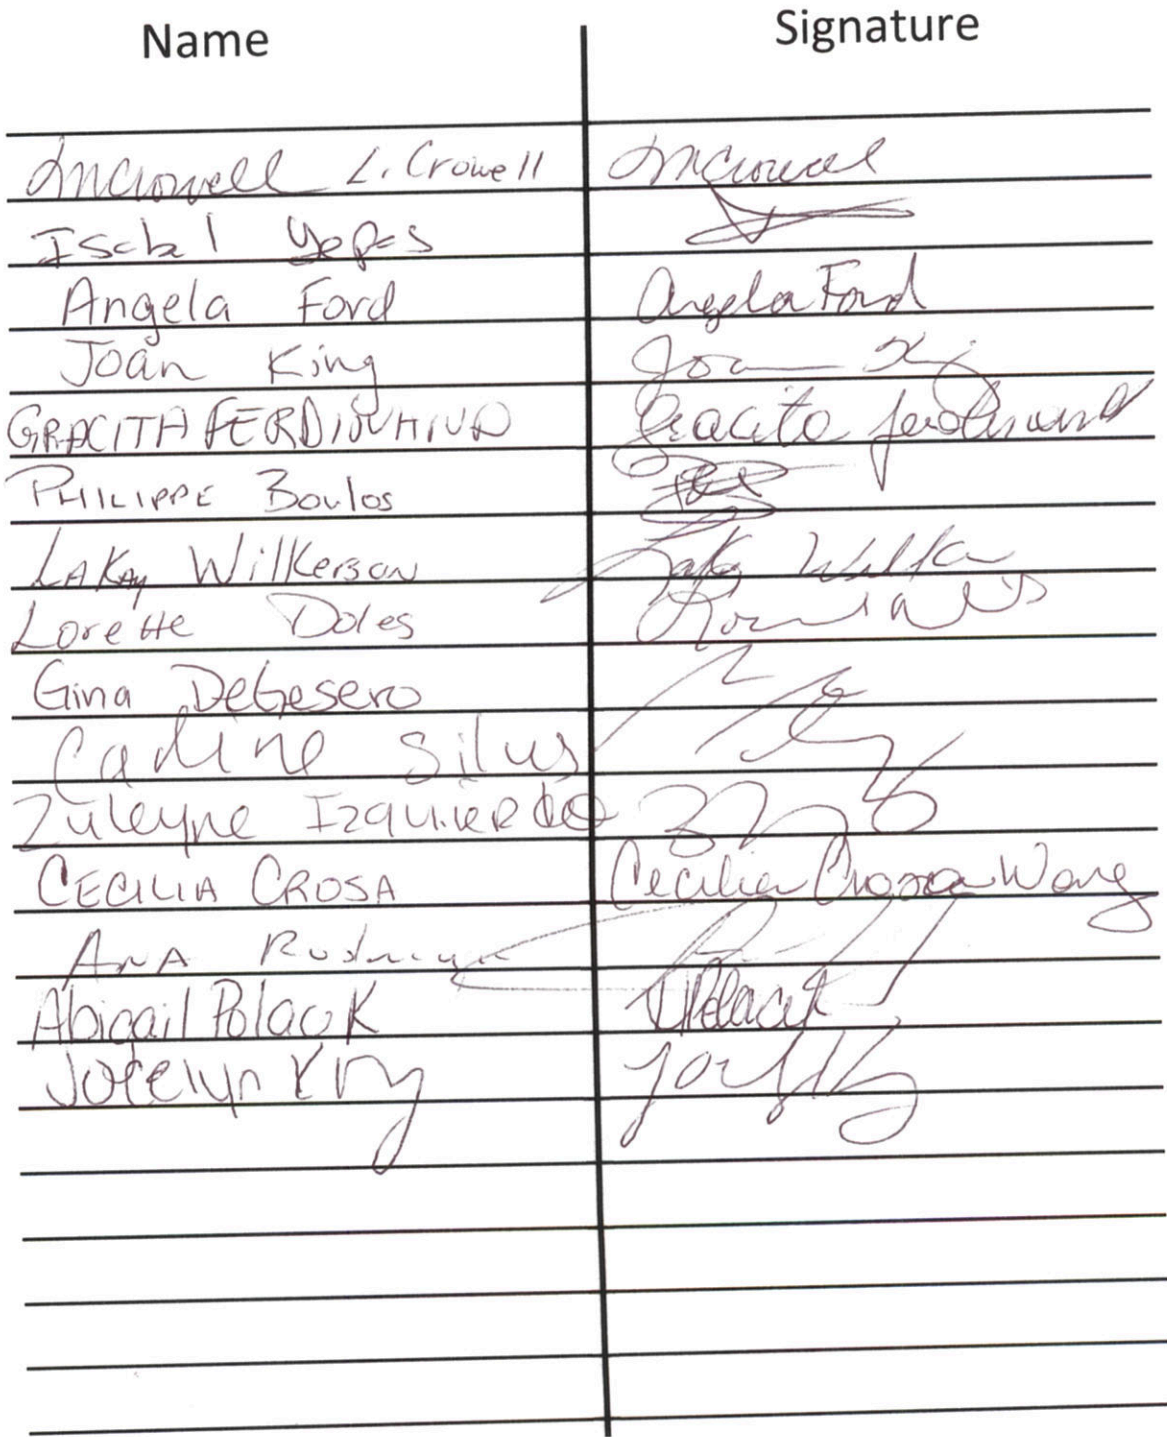 Name Signature
L. Crowell
Isabel Yepes
Angela Ford Angela Ford
Joan King Joan
GRACITA FERDINAND Gracita Ferdinand
PHILIPPE Boulos
LAKay Wilkerson
Lorette Doles
Gina DeGesero
Carline Silus
Zuleyne Izquierdo
CECILIA CROSA Cecilia Crosa Wong
ANA
Abigail Polack Polack
Jocelyn King